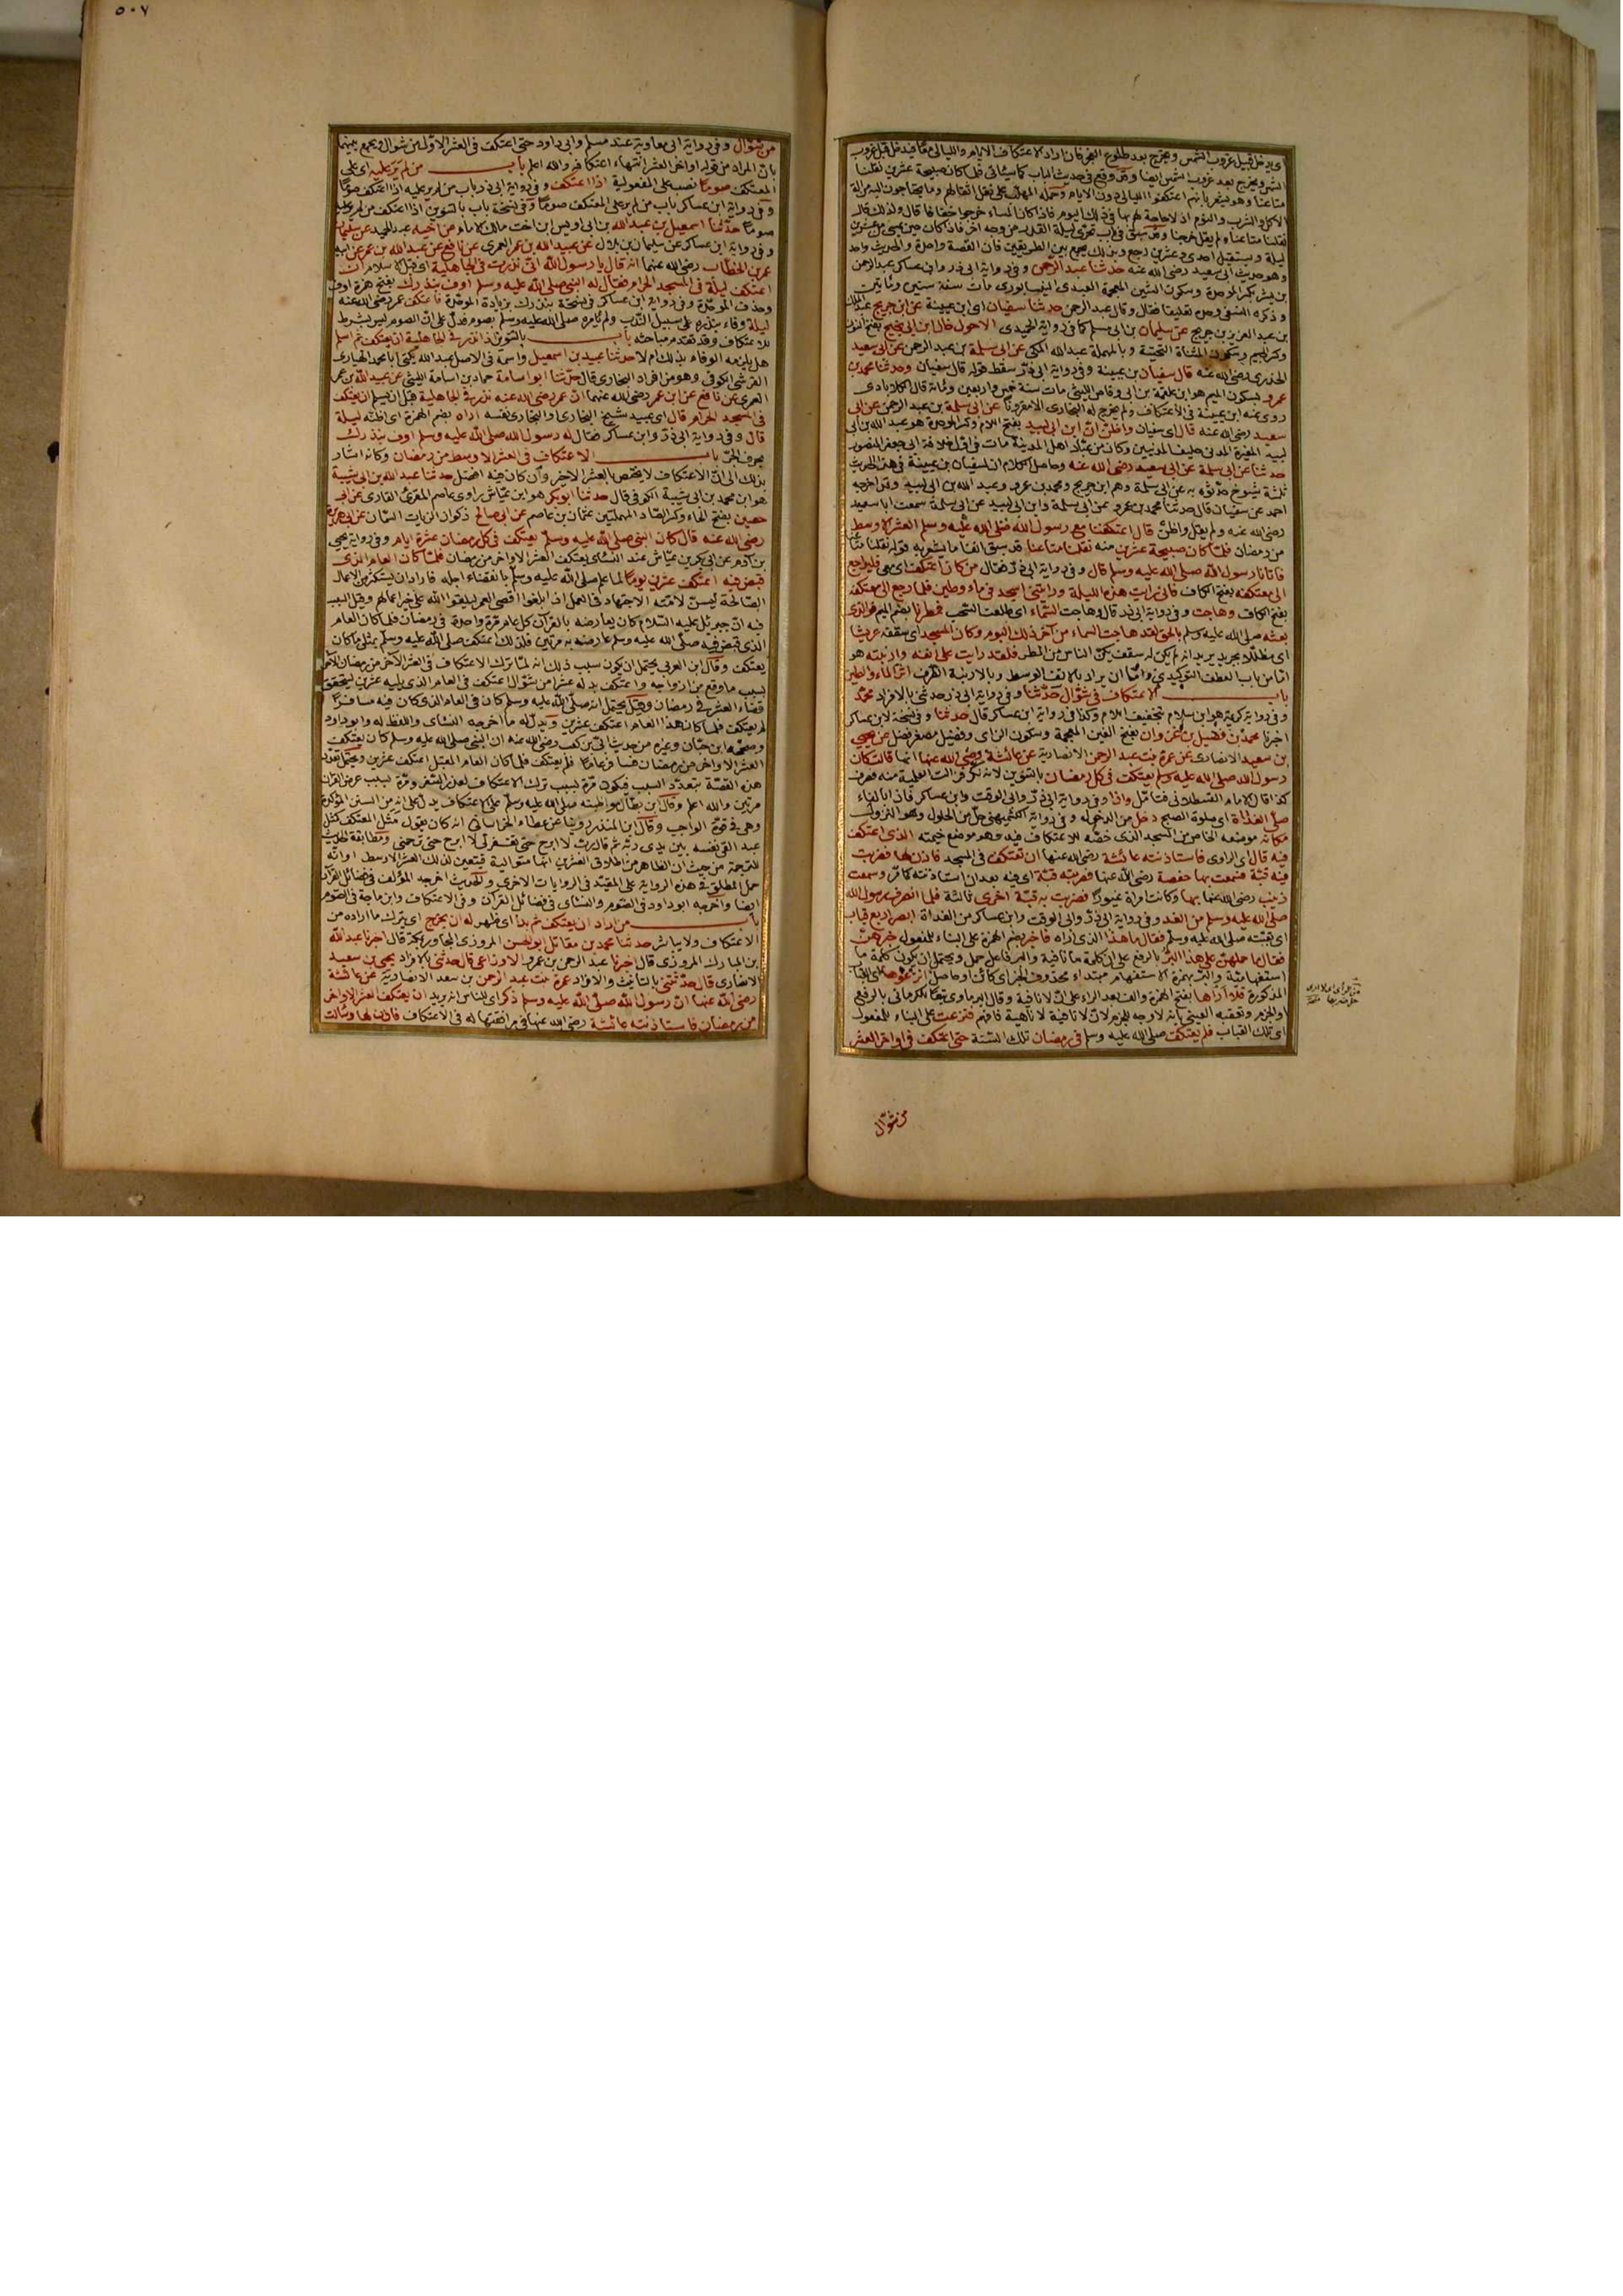 اى يدخل قبيل غروب الشمس ويخرج بعد طلوع الفجر فان اراد الاعتكاف الايام والليالى معا فيدخل قبل غروب
الشمس ويخرج بعد غروب الشمس ايضا وقد وقع فى حديث الباب كما سيأتى فلما كان صبيحة عشرين نقلنا
متاعنا وهو يشعر بانهم اعتكفوا الليالى دون الايام وحمله المهلب على نقل اثقالهم وما يحتاجون اليه من آلة
الاكل والشرب والنوم اذ لا حاجة لهم بها فى ذلك اليوم فاذا كان المساء خرجوا خفافا قال ولذلك قال
نقلنا متاعنا ولم يقل خرجنا وقد سبق فى باب تحرى ليلة القدر من وجه آخر فاذا كان حين يمسى من عشرين
ليلة ويستقبل احدى وعشرين رجع وبذلك يجمع بين الطريقين فان القصة واحدة والحديث واحد
وهو حديث ابى سعيد رضى الله عنه حدثنا عبد الرحمن وفى رواية ابى ذر وابن عساكر عبد الرحمن
بن بشر بكسر الموحدة وسكون الشين المعجمة العبدى النيسابورى مات سنة ستين ومائتين
وذكره النسفى وحده تعليقا فقال وقال عبد الرحمن حدثنا سفيان اى ابن عيينة عن ابن جريج عبد الملك
بن عبد العزيز بن جريج عن سليمان بن ابى مسلم كما فى رواية الحميدى الاحول خال ابن ابى نجيح بفتح النون
وكسر الجيم وسكون المثناة التحتية وبالمهملة عبد الله المكى عن ابى سلمة بن عبد الرحمن عن ابى سعيد
الخدرى رضى الله عنه قال سفيان بن عيينة وفى رواية ابى ذر سقط قوله قال سفيان وحدثنا محمد بن
عمرو بسكون الميم هو ابن علقمة بن ابى وقاص الليثى مات سنة خمس واربعين ومائة قال الكلاباذى
روى عنه ابن عيينة فى الاعتكاف ولم يخرج له البخارى الا مقرونا عن ابى سلمة بن عبد الرحمن عن ابى
سعيد رضى الله عنه قال اى سفيان واظن ان ابن ابى لبيد بفتح اللام وكسر الموحدة هو عبد الله بن ابى
لبيد المغيرة المدنى حليف المدنيين وكان من عباد اهل المدينة مات فى اول خلافة ابى جعفر المنصور
حدثنا عن ابى سلمة عن ابى سعيد رضى الله عنه وحاصل الكلام ان لسفيان بن عيينة فى هذا الحديث
ثلثة شيوخ حدثوه به عن ابى سلمة وهم ابن جريج ومحمد بن عمرو وعبد الله بن ابى لبيد وقد اخرجه
احمد عن سفيان قال حدثنا محمد بن عمرو عن ابى سلمة وابن ابى لبيد عن ابى سلمة سمعت ابا سعيد
رضى الله عنه ولم يقل واظن قال اعتكفنا مع رسول الله صلى الله عليه وسلم العشر الاوسط
من رمضان فلما كان صبيحة عشرين منه نقلنا متاعنا قد سبق آنفا ما يشعر به قوله نقلنا متاعنا
فاتانا رسول الله صلى الله عليه وسلم قال وفى رواية ابى ذر فقال من كان اعتكف اى معى فليرجع
الى معتكفه بفتح الكاف فانى رايت هذه الليلة ورايتنى اسجد فى ماء وطين فلما رجع الى معتكفه
بفتح الكاف وهاجت وفى رواية ابى ذر قال وهاجت السماء اى طلعت السحب فمطرنا بضم الميم فوالذى
بعثه صلى الله عليه وسلم بالحق لقد هاجت السماء من آخر ذلك اليوم وكان المسجد اى سقفه عريشا
اى مظللا بجريد يريد انه لم يكن له سقف يكن الناس من المطر فلقد رايت على انفه وارنبته هو
اما من باب العطف التوكيدى واما ان يراد بالانف الوسط وبالارنبة الطرف اثر الماء والطين
باب الاعتكاف فى شوال حدثنا وفى رواية ابى ذر حدثنى بالافراد محمد
وفى رواية كريمة هو ابن سلام بتخفيف اللام وكذا فى رواية ابن عساكر قال حدثنا وفى نسخة لابن عساكر
اخبرنا محمد بن فضيل بن غزوان بفتح الغين المعجمة وسكون الزاى وفضيل مصغر فضل عن يحيى
بن سعيد الانصارى عن عمرة بنت عبد الرحمن الانصارية عن عائشة رضى الله عنها انها قالت كان
رسول الله صلى الله عليه وسلم يعتكف فى كل رمضان بالتنوين لانه نكرة فزالت العلمية منه فصرف
كذا قال الامام القسطلانى فتأمل واذا وفى رواية ابى ذر وابى الوقت وابن عساكر فاذا بالفاء
صلى الغداة اى صلوة الصبح دخل من الدخول وفى رواية الكشميهنى حل من الحلول وهو النزول
مكانه موضعه الخاص من المسجد الذى خصه للاعتكاف فيه وهو موضع خيمته الذى اعتكف
فيه قال اى الراوى فاستاذنته عائشة رضى الله عنها ان تعتكف فى المسجد فاذن لها فضربت
فيه قبة فسمعت بها حفصة رضى الله عنها فضربت قبة اى فيه بعد ان استاذنته كما مر وسمعت
زينب رضى الله عنها بها وكانت امرأة غيورا فضربت به قبة اخرى ثالثة فلما انصرف رسول الله
صلى الله عليه وسلم من الغد وفى رواية ابى ذر وابى الوقت وابن عساكر من الغداة ابصر اربع قباب
اى بقبته صلى الله عليه وسلم فقال ما هذا الذى اراه فاخبر بضم الهمزة على البناء للمفعول خبرهن
فقال ما حملهن على هذا البر بالرفع على ان كلمة ما نافية والبر فاعل حمل ويحتمل ان يكون كلمة ما
استفهامية والبر بهمزة الاستفهام مبتداء محذوف الخبر اى كائن او حاصل انزعوها اى القباب
المذكورة فلا أراها بفتح الهمزة والف بعد الراء على ان لا نافية وقال البرماوى تبعا للكرمانى بالرفع
او الجزم وتعقبه العينى بانه لا وجه للجزم لان لا نافية لا ناهية فافهم فنزعت على البناء للمفعول
اى تلك القباب فلم يعتكف صلى الله عليه وسلم فى رمضان تلك السنة حتى اعتكف فى اواخر العشر
من شوال
٥٠٧
من شوال وفى رواية ابى معاوية عند مسلم وابى داود حتى اعتكف فى العشر الاول من شوال ويجمع بينهما
بان المراد من قوله اواخر العشر انتهاء اعتكافه والله اعلم باب من لم ير عليه اى على
المعتكف صوما نصب على المفعولية اذا اعتكف وفى رواية ابى ذر باب من لم ير عليه اذا اعتكف صوما
وفى رواية ابن عساكر باب من لم ير على المعتكف صوما وفى نسخة باب بالتنوين اذا اعتكف من لم ير عليه
صوما حدثنا اسمعيل بن عبد الله بن ابى اويس ابن اخت مالك الامام عن اخيه عبد الحميد عن سليمان
وفى رواية ابن عساكر عن سليمان بن بلال عن عبيد الله بن عمر العمرى عن نافع عن عبد الله بن عمر عن ابيه
عمر بن الخطاب رضى الله عنهما انه قال يا رسول الله انى نذرت فى الجاهلية اى قبل الاسلام ان
اعتكف ليلة فى المسجد الحرام فقال له النبى صلى الله عليه وسلم اوف بنذرك بفتح همزة اوف
وحذف الموحدة وفى رواية ابن عساكر فى نسخة بنذرك بزيادة الموحدة فاعتكف عمر رضى الله عنه
ليلة وفاء بنذره على سبيل الندب ولم يأمره صلى الله عليه وسلم بصوم فدل على ان الصوم ليس بشرط
للاعتكاف وقد تقدم مباحثه باب بالتنوين اذا نذر فى الجاهلية ان يعتكف ثم اسلم
هل يلزمه الوفاء بذلك ام لا حدثنا عبيد بن اسمعيل واسمه فى الاصل عبد الله يكنى ابا محمد الهبارى
القرشى الكوفى وهو من افراد البخارى قال حدثنا ابو اسامة حماد بن اسامة الليثى عن عبيد الله بن عمر
العمرى عن نافع عن ابن عمر رضى الله عنهما ان عمر رضى الله عنه نذر فى الجاهلية قبل ان يسلم ان يعتكف
فى المسجد الحرام قال اى عبيد شيخ البخارى او البخارى نفسه اراه بضم الهمزة اى اظنه ليلة
قال وفى رواية ابى ذر وابن عساكر فقال له رسول الله صلى الله عليه وسلم اوف بنذرك
بحرف الجر باب الاعتكاف فى العشر الاوسط من رمضان وكانه اشار
بذلك الى ان الاعتكاف لا يختص بالعشر الاخير وان كان فيه افضل حدثنا عبد الله بن ابى شيبة
هو ابن محمد بن ابى شيبة الكوفى قال حدثنا ابو بكر هو ابن عياش راوى عاصم المقرئ القارى عن ابى
حصين بفتح الحاء وكسر الصاد المهملتين عثمان بن عاصم عن ابى صالح ذكوان الزيات السمان عن ابى هريرة
رضى الله عنه قال كان النبى صلى الله عليه وسلم يعتكف فى كل رمضان عشرة ايام وفى رواية يحيى
بن آدم عن ابى بكر بن عياش عند النسائى يعتكف العشر الاواخر من رمضان فلما كان العام الذى
قبض فيه اعتكف عشرين يوما لما علم صلى الله عليه وسلم بانقضاء اجله فاراد ان يستكثر من الاعمال
الصالحة ليسن لامته الاجتهاد فى العمل اذا بلغوا اقصى العمر ليلقوا الله على خير اعمالهم وقيل السبب
فيه ان جبرئيل عليه السلام كان يعارضه بالقرآن كل عام مرة واحدة فى رمضان فلما كان العام
الذى قبض فيه صلى الله عليه وسلم عارضه به مرتين فلذلك اعتكف صلى الله عليه وسلم بمثلى ما كان
يعتكف وقال ابن العربى يحتمل ان يكون سبب ذلك انه لما ترك الاعتكاف فى العشر الاخر من رمضان
بسبب ما وقع من ازواجه واعتكف بدله عشرا من شوال اعتكف فى العام الذى يليه عشرين ليتحقق
قضاء العشر فى رمضان وقيل يحتمل انه صلى الله عليه وسلم كان فى العام الذى كان فيه مسافرا
لم يعتكف فلما كان هذا العام اعتكف عشرين ويدل له ما اخرجه النسائى واللفظ له وابو داود
وصححه ابن حبان وغيره من حديث ابى بن كعب رضى الله عنه ان النبى صلى الله عليه وسلم كان يعتكف
العشر الاواخر من رمضان فسافر عاما فلم يعتكف فلما كان العام المقبل اعتكف عشرين ويحتمل تعدد
هذه القصة بتعدد السبب فيكون مرة بسبب ترك الاعتكاف لعذر السفر ومرة بسبب عرض القرآن
مرتين والله اعلم وقال ابن بطال مواظبته صلى الله عليه وسلم على الاعتكاف يدل على انه من السنن المؤكدة
وهى فى قوة الواجب وقال ابن المنذر روينا عن عطاء الخراسانى انه كان يقول مثل المعتكف كمثل
عبد القى نفسه بين يدى ربه ثم قال رب لا ابرح حتى تغفر لى لا ابرح حتى ترحمنى ومطابقة الحديث
للترجمة من حيث ان الظاهر من اطلاق العشرين انها متوالية فيتعين لذلك العشر الاوسط او انه
حمل المطلق فى هذه الرواية على المقيد فى الروايات الاخرى والحديث اخرجه المؤلف فى فضائل القرآن
ايضا واخرجه ابو داود فى الصوم والنسائى فى فضائل القرآن وفى الاعتكاف وابن ماجة فى الصوم
باب من اراد ان يعتكف ثم بدا اى ظهر له ان يخرج اى يترك ما اراده من
الاعتكاف ولا يباشر حدثنا محمد بن مقاتل ابو الحسن المروزى المجاور بمكة قال اخبرنا عبد الله
بن المبارك المروزى قال اخبرنا عبد الرحمن بن عمرو الاوزاعى قال حدثنى بالافراد يحيى بن سعيد
الانصارى قال حدثتنى بالتأنيث والافراد عمرة بنت عبد الرحمن بن سعد الانصارية عن عائشة
رضى الله عنها ان رسول الله صلى الله عليه وسلم ذكر اى للناس انه يريد ان يعتكف العشر الاواخر
من رمضان فاستاذنته عائشة رضى الله عنها فى مرافقتها له فى الاعتكاف فاذن لها وسألت